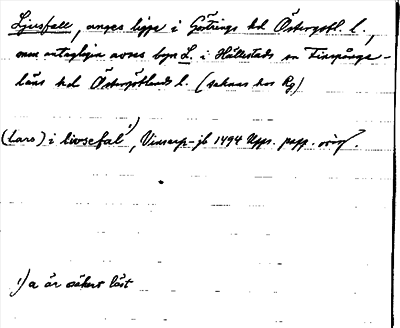 Ljusfall, anges ligga i Götrings hd Östergötl. l.,
men antagligen avses byn L. i Hällestads sn Finspånga-
läns hd Östergötlands l. (saknas hos Rg)
(Lars) i liusefal ¹), Vinsarp-jb 1494 Upps. papp. orig.
¹) a är säkert läst